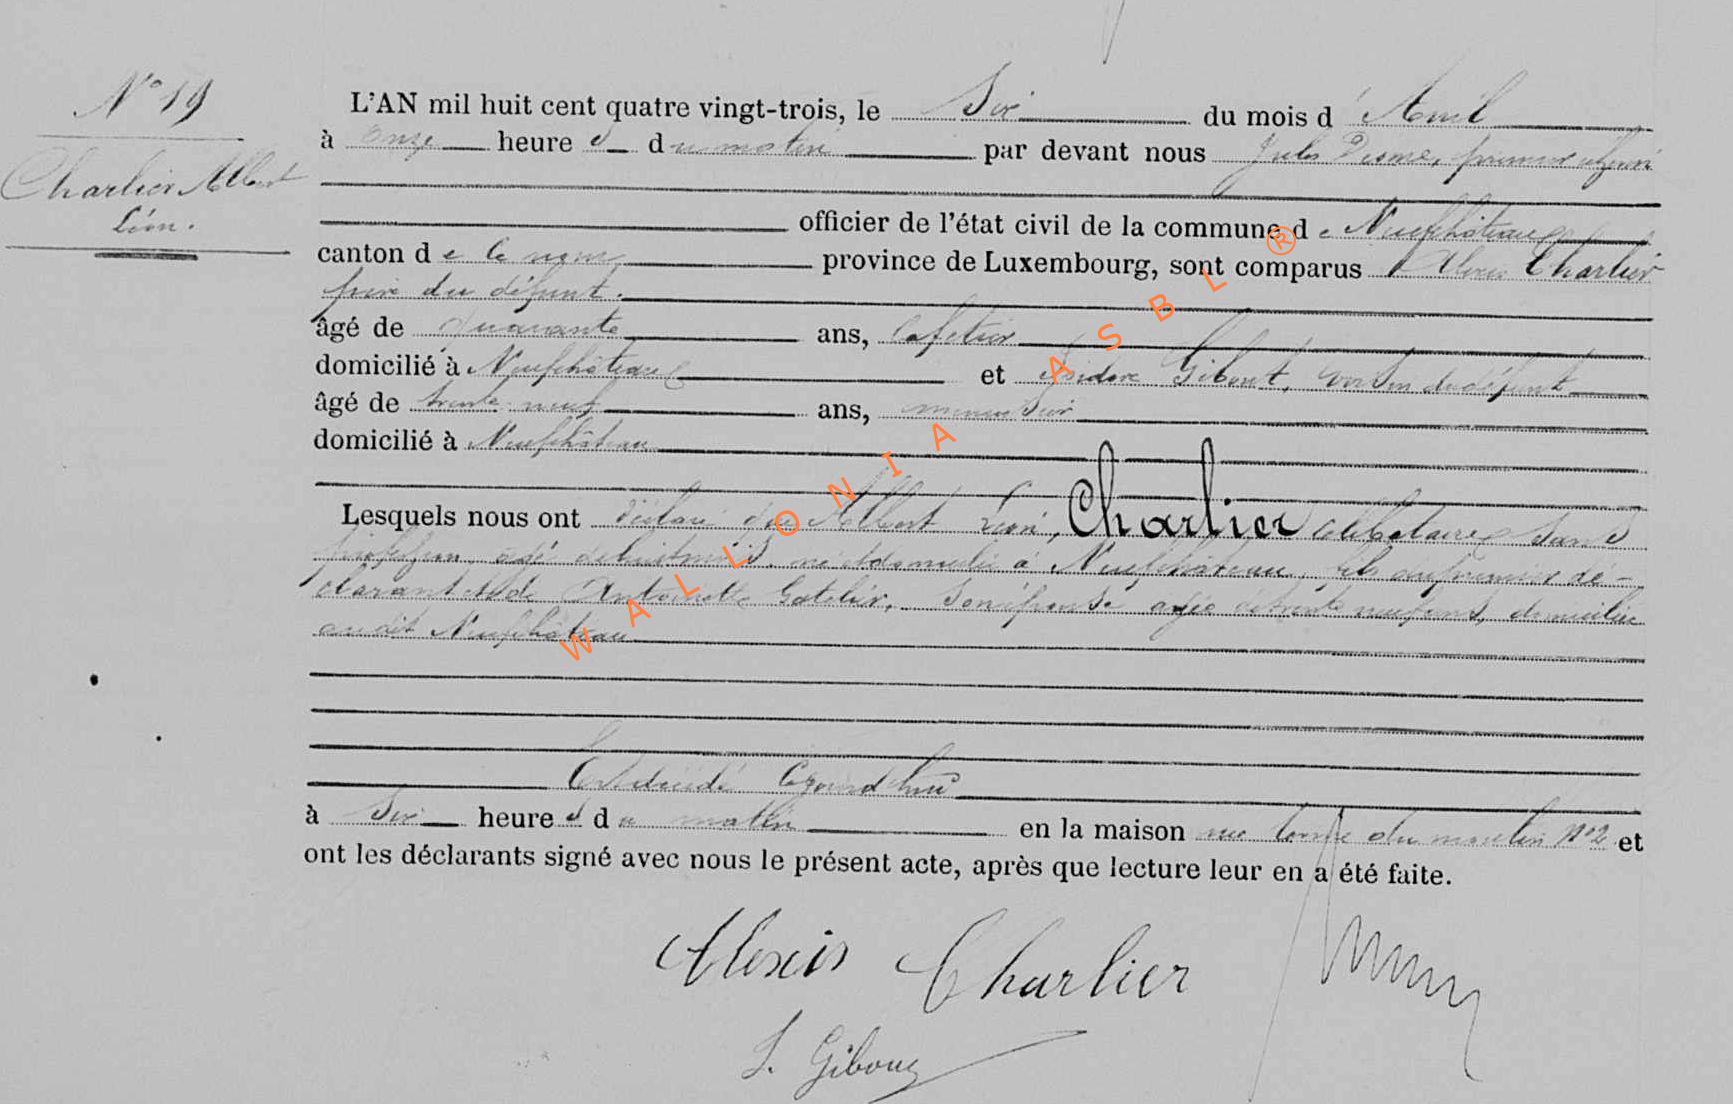 N° 19
Charlier Albert
Léon.
L'AN mil huit cent quatre vingt-trois, le Six du mois d'Avril
à onze heure s du matin par devant nous Jules premier échevin
officier de l'état civil de la commune de Neufchâteau
canton de le même province de Luxembourg, sont comparus Alexis Charlier
père du défunt.
âgé de quarante ans, Cafetier
domicilié à Neufchâteau et Isidore voisin du défunt
âgé de trente neuf ans, menuisier
domicilié à Neufchâteau
Lesquels nous ont déclaré que Albert Léon, Charlier célibataire sans
profession, âgé de huit mois, né et domicilié à Neufchâteau, fils du premier dé-
clarant et de Antoinette son épouse âgée de trente neuf ans, domiciliée
audit Neufchâteau
Est décédé aujourd'hui
à Six heure s du matin en la maison rue du moulin N° 2 et
ont les déclarants signé avec nous le présent acte, après que lecture leur en a été faite.
Alexis Charlier
WALLONIA ASBL ®